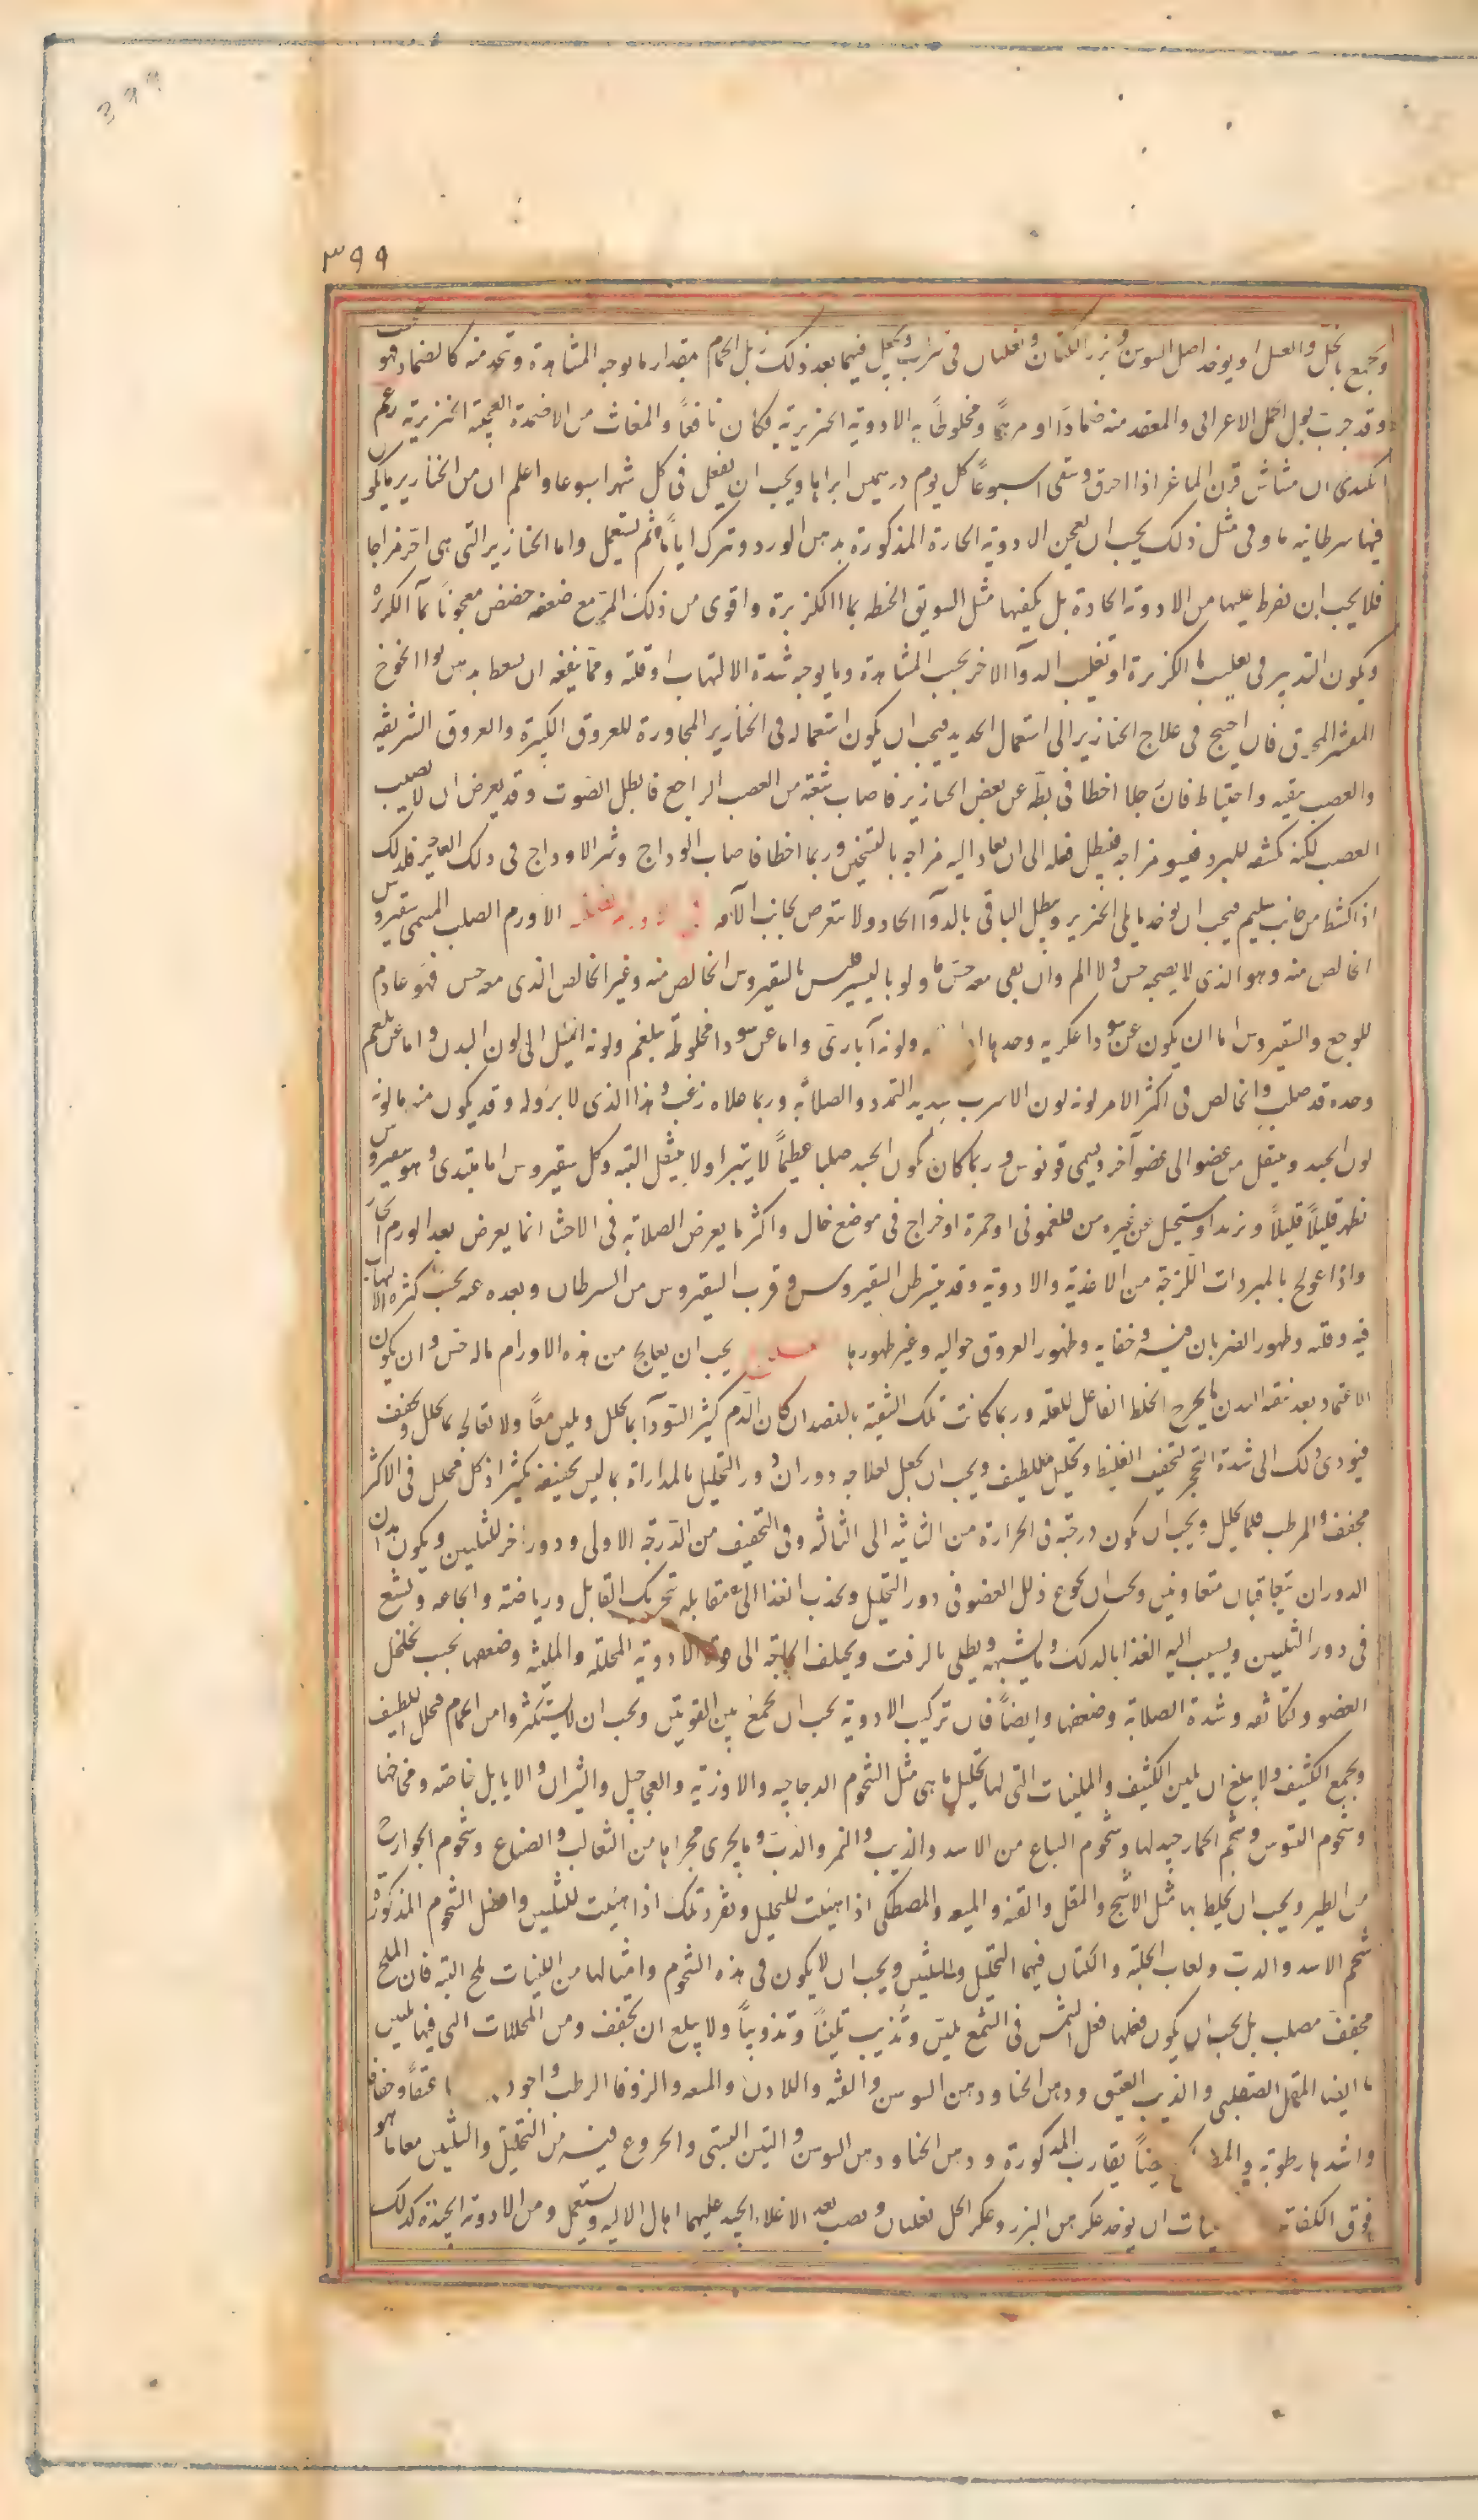 399
٣٩٩
ويجمع بالخل والعسل او يوخذ اصل السوسن وبزر الكتان ويغليان فى شراب ويجعل فيما بعد ذلك زبل الحمام بمقدار ما يوجبه المشاهدة وتخذ منه كالضماد فهو
وقد جرب بول الجمل الاعرابى والمعقد منه ضمادًا او مرهمًا ومخلوطًا به الادوية الخنزيرية فكان نافعًا والمغاث من الاضمدة العجيبة الخنزيرية زعم
الكندى ان مشاش قرن الماعز اذا احرق وسقى اسبوعًا كل يوم درهمين ابراها ويجب ان يفعل فى كل شهر اسبوعا واعلم ان من الخنازير ما يكون
فيها سرطانية ما وفى مثل ذلك يجب ان يعجن الادوية الحارة المذكورة بدهن الورد وترك ايامًا ثم يستعمل واما الخنازير التى هى احر مزاجا
فلا يجب ان يفرط عليها من الادوية الحادة بل يكفيها مثل السويق الحنطه بماا الكزبرة واقوى من ذلك المر مع ضعفه حضض معجونًا بمآ الكزبرة
ويكون التدبير فى تغليب ما الكزبرة او تغليب الدوآ الاخر بحسب المشاهدة وما يوجبه شدة الالتهاب او قلته ومما ينفعه ان يسعط بدهن نوا الخوخ
المقشر المحرق فان احتيج فى علاج الخنازير الى استعمال الحديد فيجب ان يكون استعماله فى الخنازير المجاورة للعروق الكبيرة والعروق الشريفه
والعصب بتقيه واحتياط فان رجلا اخطا فى بطه عن بعض الخنازير فاصاب شعبة من العصب الراجع فابطل الصوت وقد يعرض ان لا يصيب
العصب لكنه يكشفه للبرد فيسو مزاجه فيبطل فعله الى ان يعاد اليه مزاجه بالتسخين وربما اخطا فاصاب الوداج وشر الاوداج فى ذلك الغاير فلذلك
اذا كشطا من جانب سليم فيجب ان يوخذ ما يلى الخنزير ويبطل الباقى بالدوآ الحاد ولا يتعرض بجانب الآفه الاورم الصلب المسمى سقيروس
الخالص منه وهو الذى لا يصحبه حس ولا الم وان بقى معه حس ما ولو باليسير فليس بالسقيروس الخالص منه وغير الخالص الذى معه حس فهو عادم
للوجع والسقيروس اما ان يكون عن سودا عكريه وحدها ولونه آبارى واما عن سودا مخلوطة ببلغم ولونه اميل الى لون البدن واما عن بلغم
وحده قد صلب والخالص فى اكثر الامر لونه لون الاسرب شديد التمدد والصلابة وربما علاه زغب وهذا الذى لا برؤ له وقد يكون منه ما لونه
لون الجسد وينتقل من عضو الى عضو آخر ويسمى قونوس وربما كان بلون الجسد صلبا عظيمًا لا يتبرا ولا ينتقل البتة وكل سقيروس اما مبتدى وهو سقيروس
يظهر قليلًا قليلًا ويزيد او يستحيل عن غيره من فلغمونى او حمرة او خراج فى موضع خال واكثر ما يعرض الصلابة فى الاحشا انما يعرض بعد الورم الحار
واذا عولج بالمبردات اللزجة من الاغذية والادوية وقد يتسرطن السقيروس وقرب السقيروس من السرطان وبعده عنه بحسب كثرة الالتهاب
فيه وقلته وظهور الضربان فيه وخفايه وظهور العروق حواليه وغير ظهورها يجب ان يعالج من هذه الاورام ما له حس وان يكون
الاعتماد بعد تنقيه البدن بما يخرج الخلط الفاعل للعلة وربما كانت تلك التنقية بالفصد ان كان الدم كثير السودآ بما يحلل ويلين معًا ولا تعالجه بما يحلل ويجفف
فيودى ذلك الى شدة التحجر لتجفيف الغليظ وتحليل اللطيف ويجب ان يجعل لعلاجه دوران دور التحليل بالمداراة بما ليس تجفيفه بكثير اذ كل محلل فى الاكثر
مجفف والمرطب قلما يحلل ويجب ان يكون درجته فى الحرارة من الثانية الى الثالثه وفى التجفيف من الدرجة الاولى ودور اخر للتليين ويكون هذان
الدوران يتعاقبان متعاونين ويجب ان يجوع ذلك العضو فى دور التحليل ويجذب الغذا الى مقابله بتحريك المقابل ورياضته واجاعه ويشبع
فى دور التليين ويسيب اليه الغذا بالدلك وما يشبهه ويطلى بالزفت ويختلف الحاجة الى قوة الادوية المحللة والملينة وضعفها بحسب تخلخل
العضو وتكاثفه وشدة الصلابة وضعفها وايضًا فان تركيب الادوية يجب ان يجمع بين القوتين ويجب ان لا يستكثروا من الحمام فيحلل اللطيف
ويجمع الكثيف ولا يبلغ ان يلين الكثيف والملينات التى لها تحليل ما هى مثل الشحوم الدجاجيه والاوزية والعجاجيل والثيران والايايل خاصة ومخاخها
وشحوم التيوس وشحم الحمار جيد لها وشحوم السباع من الاسد والذيب والنمر والدب وما يجرى مجراها من الثعالب والضباع وشحوم الجوارح
من الطير ويجب ان يخلط بها مثل الاشج والمقل والقنه والميعه والمصطكى اذا هيئت للتحليل ويفرد تلك اذا هيئت للتليين وافضل الشحوم المذكورة
شحم الاسد والدب ولعاب الحلبة والكتان فيهما التحليل والتليين ويجب ان لا يكون فى هذه الشحوم وامثالها من اللينات ملح البتة فان الملح
مجفف مصلب بل يجب ان يكون فعلها فعل الشمس فى الشمع يلين وتذيب تليينًا وتذويبًا ولا يبلغ ان يجفف ومن المحللات التى فيها تليين
ما ايضا المقل الصقلبى والذيب العتيق ودهن الحنا ودهن السوسن والقنه واللادن والميعه والزوفا الرطب واجود عتقًا وجفافًا
واشدها رطوبة يقارب المذكورة ودهن الحنا ودهن السوسن والتين البستى والخروع فيه من التحليل والتليين معا ما هو
فوق الكفاية ان يوخذ عكر دهن البزر وعكر الخل يغليان ويصب بعد الاغلا الجيد عليهما اهال الاليه ويستعمل ومن الادوية الجيدة كذلك